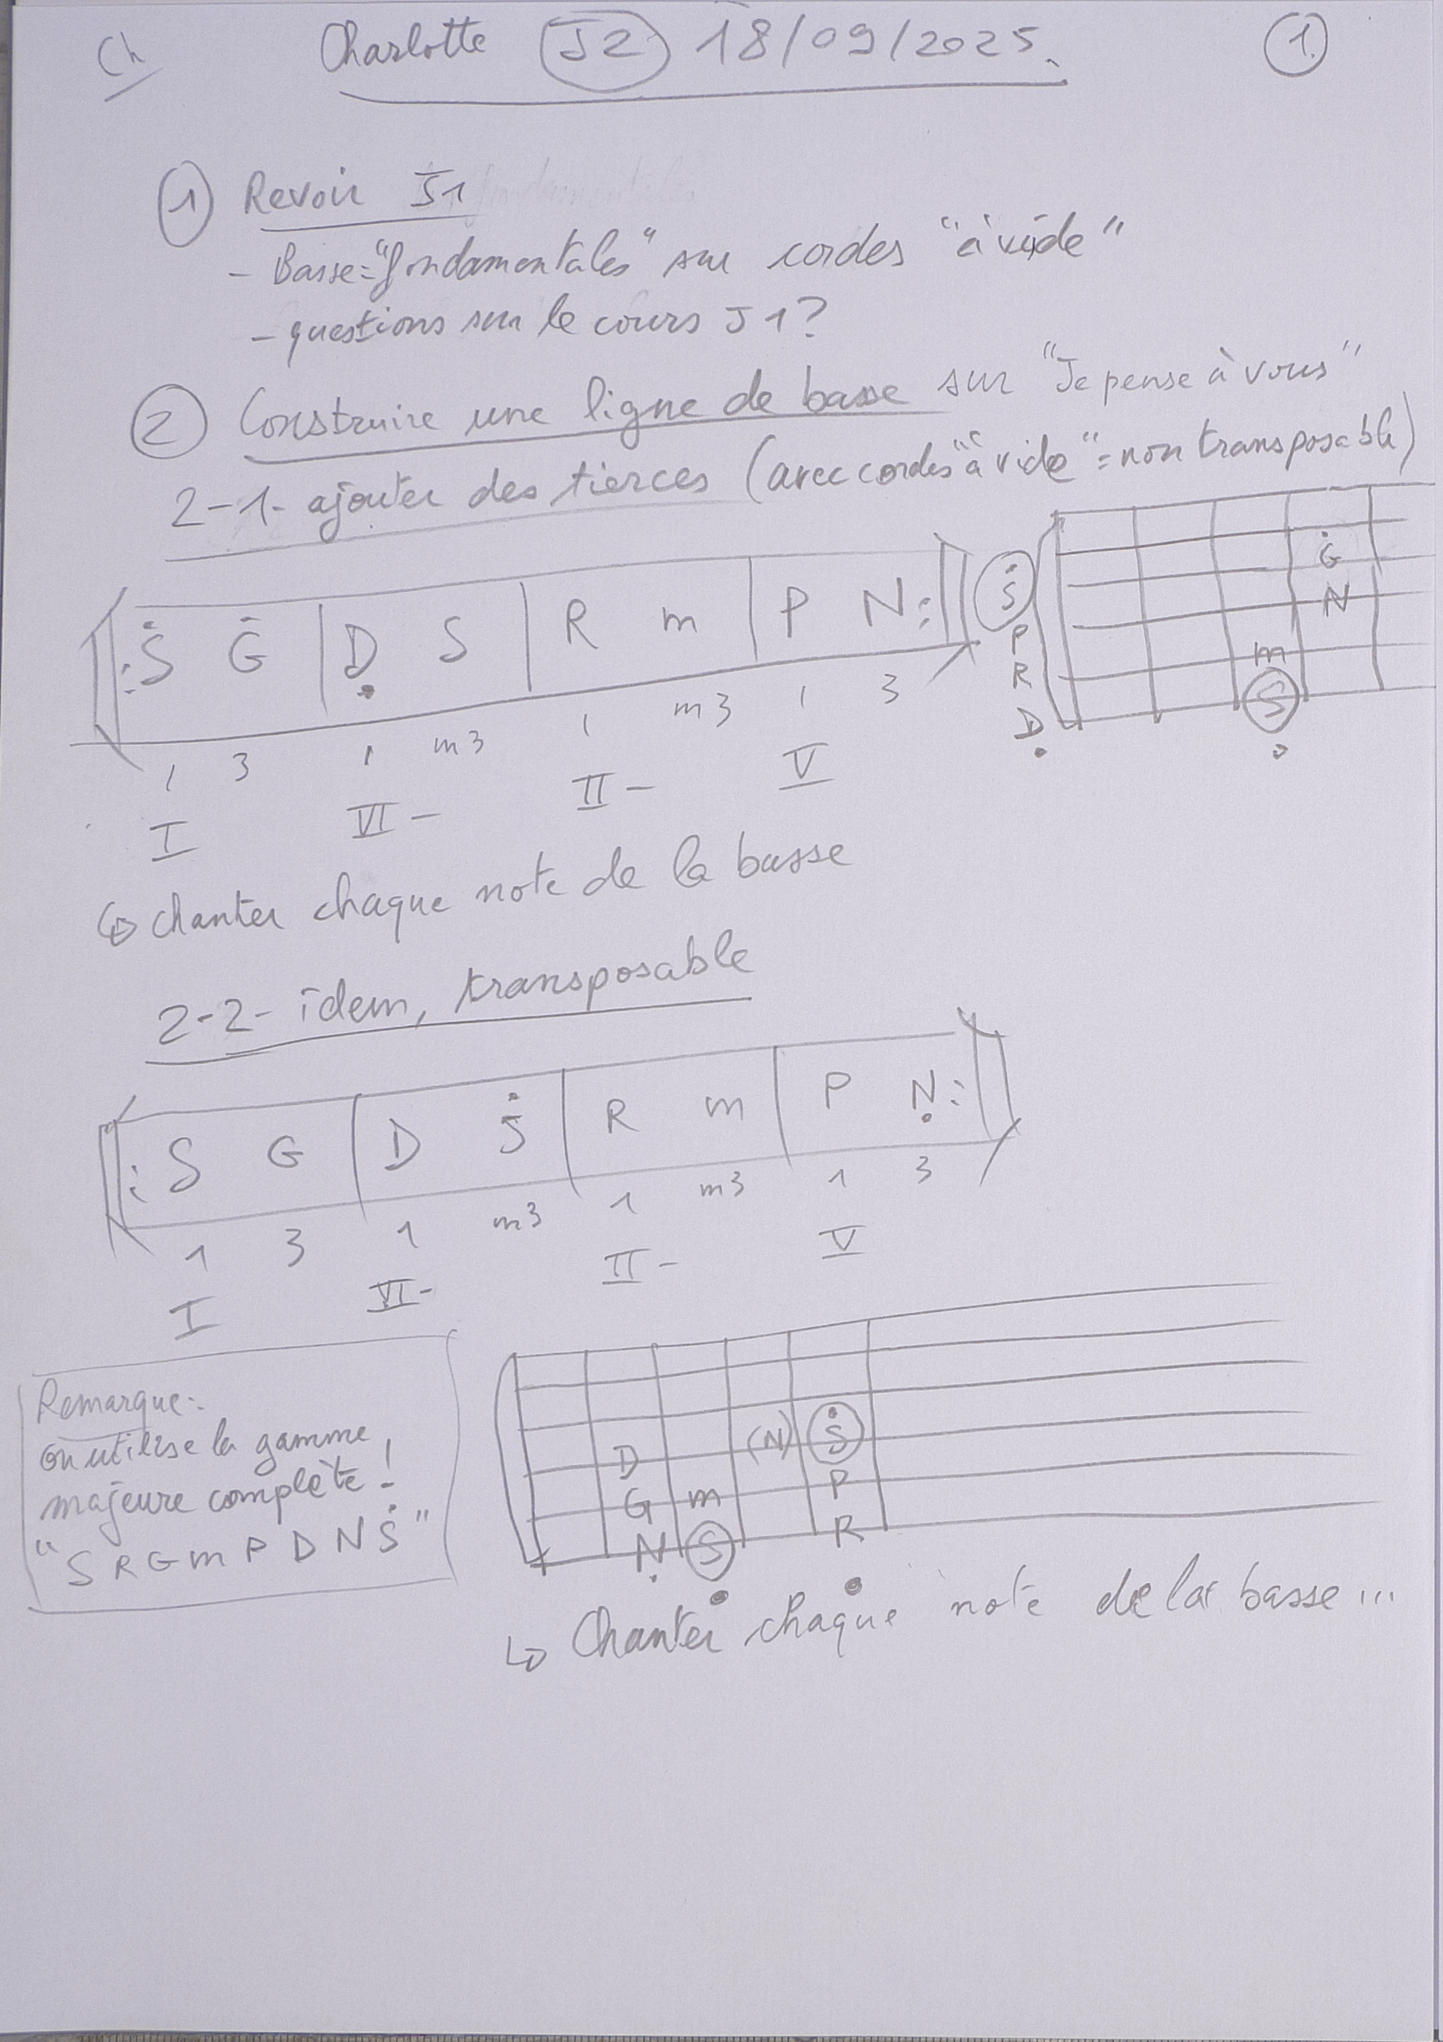 Ch Charlotte J2 18/09/2025. 1.
1 Revoir J1
- Basse="fondamentales" sur cordes "à vide"
- questions sur le cours J1?
2 Construire une ligne de basse sur "Je pense à vous"
2-1- ajouter des tierces (avec cordes "à vide" = non transposable)
:Ṡ Ġ | Ḍ S | R m | P N:
1 3 1 m3 1 m3 1 3
I VI- II- V
Ṡ
P
R
Ḍ
Ġ
N
m
S
↳ chanter chaque note de la basse
2-2- idem, transposable
:S G | D Ṡ | R m | P Ṇ:
1 3 1 m3 1 m3 1 3
I VI- II- V
Remarque:
on utilise la gamme
majeure complète!
"S R G m P D N Ṡ"
D (N) Ṡ
G m P
Ṇ S R
↳ Chanter chaque note de la basse...